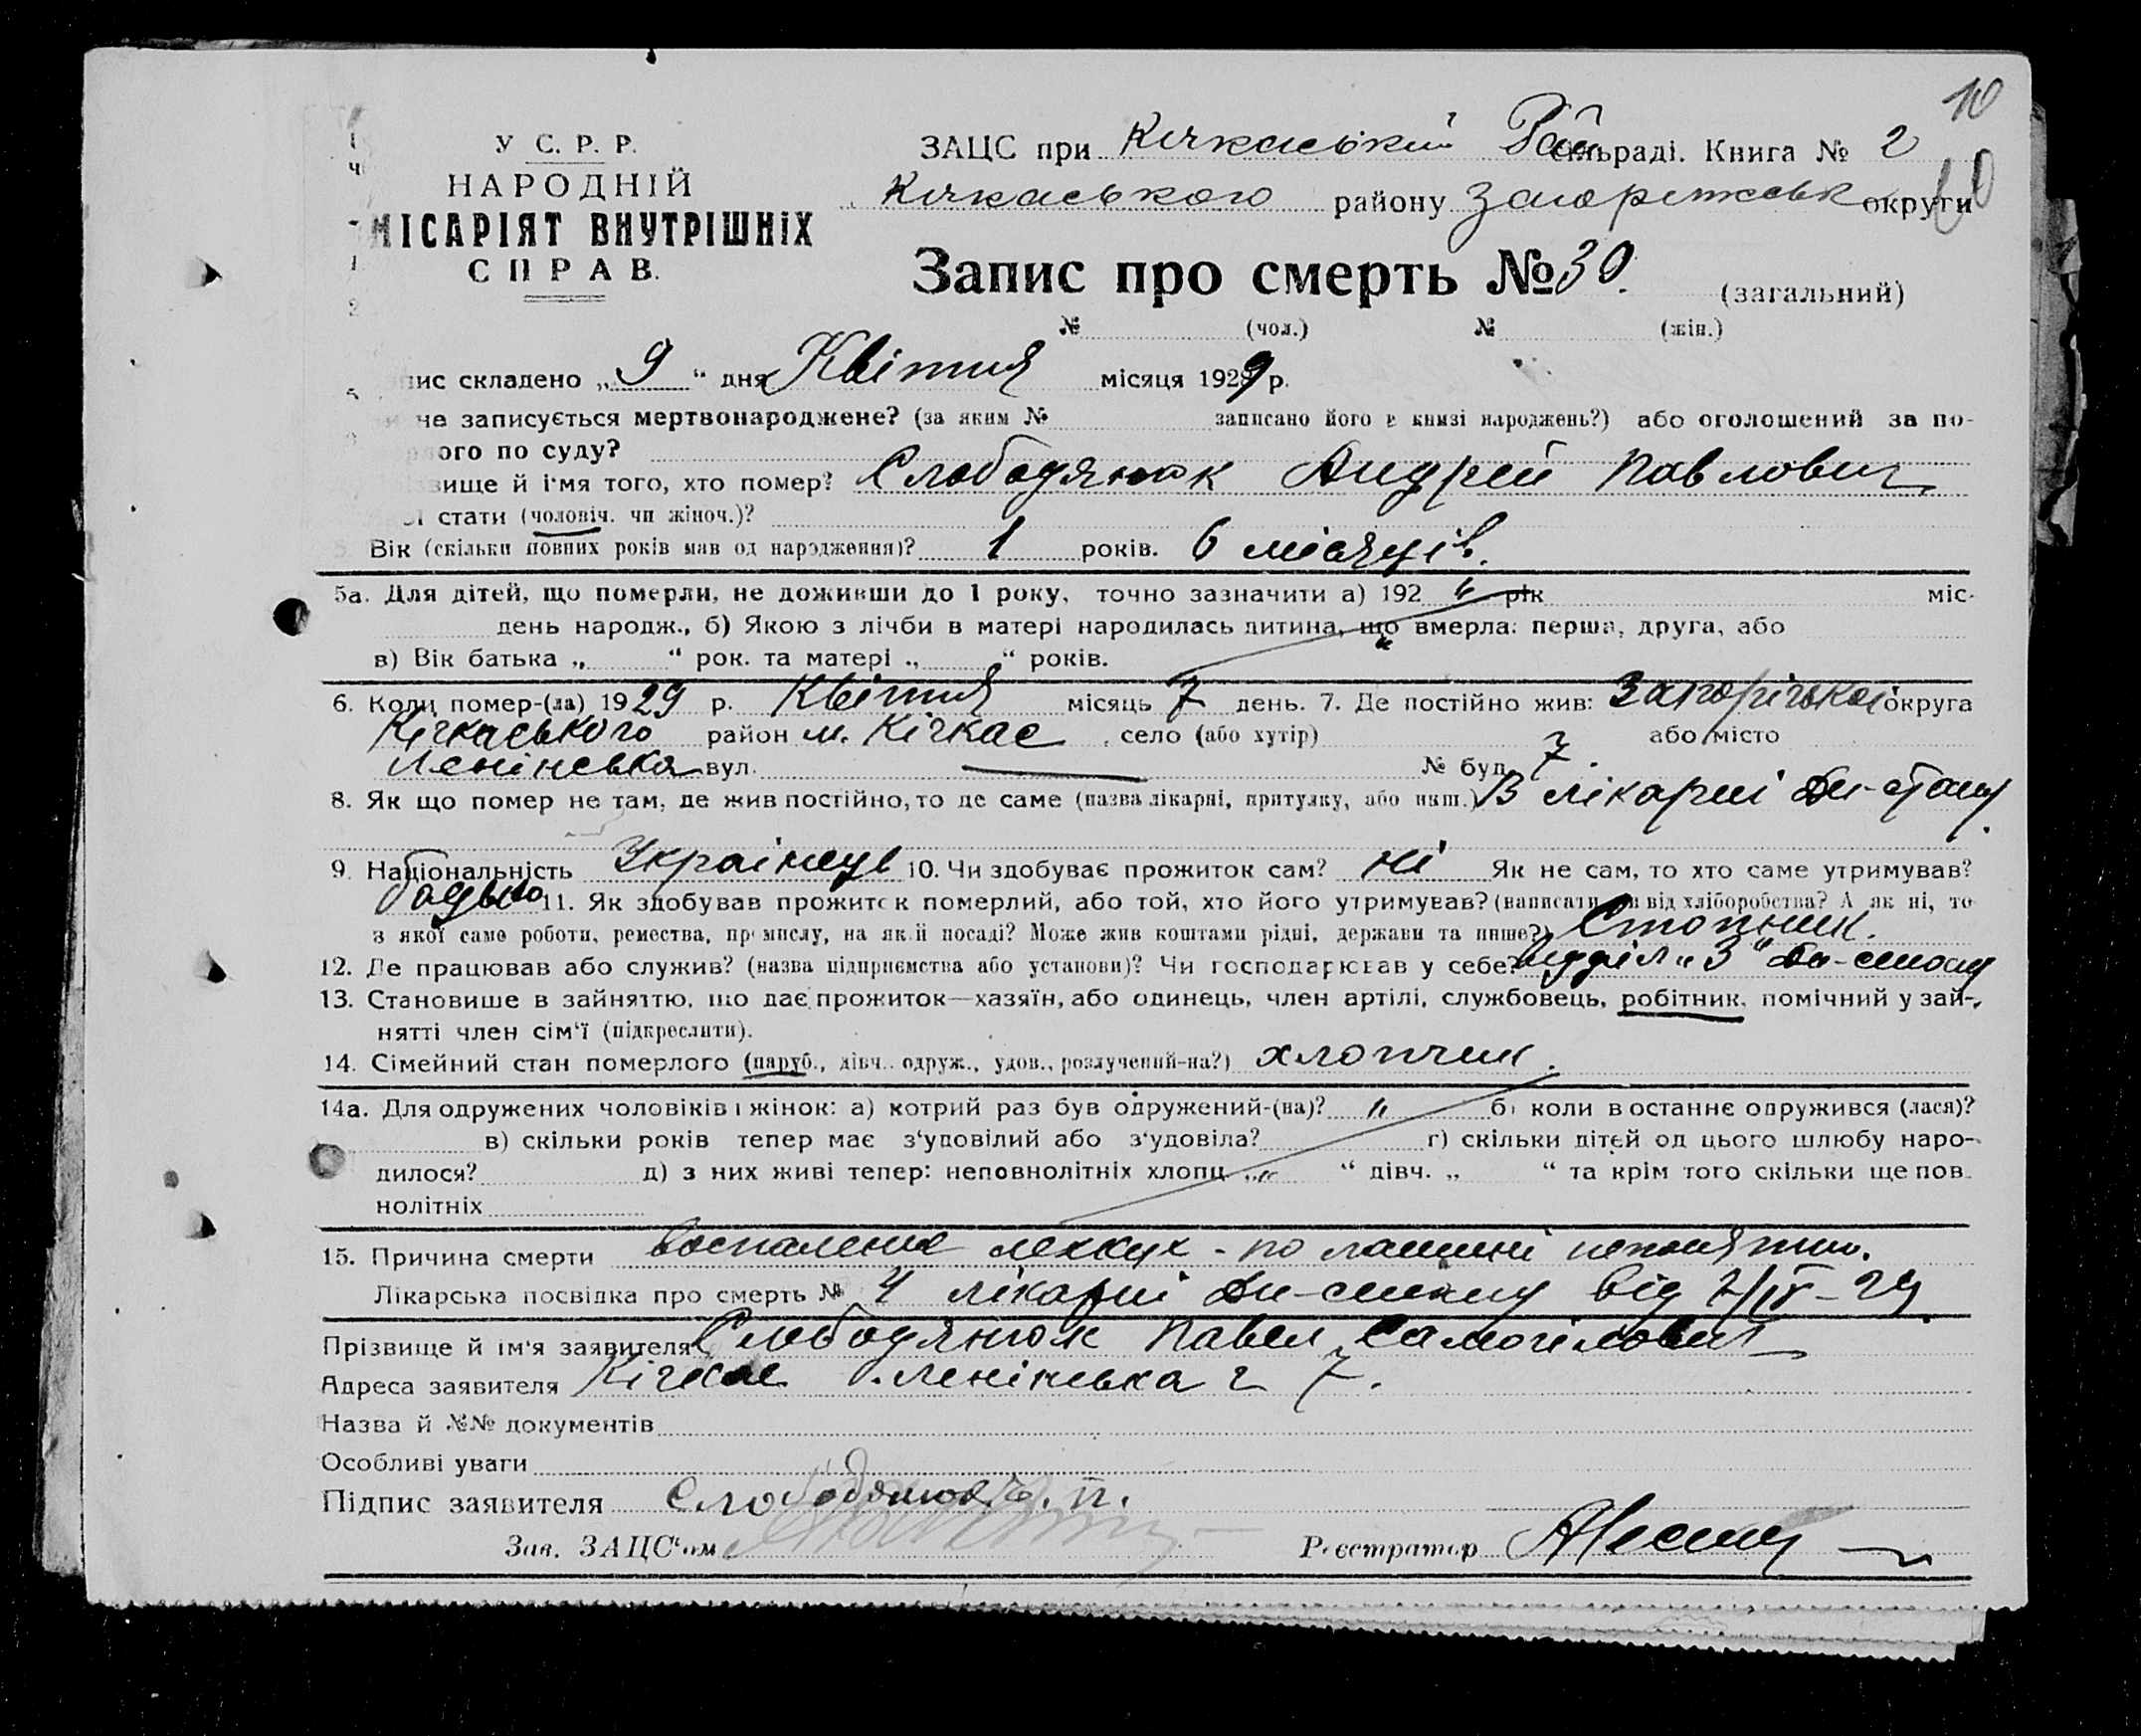 10
У С. Р. Р.
НАРОДНІЙ
МІСАРІЯТ ВНУТРІШНІХ
СПРАВ.
ЗАЦС при Кічкаський Рай сільраді. Книга № 2
Кічкаського району Запоріжськ округи
Запис про смерть № 30. (загальний)
№ (чол.) № (жін.)
пис складено „ 9 “ дня Квітня місяця 1929 р.
не записується мертвонароджене? (за яким № записано його в книзі народжень?) або оголошений за по-
ого по суду?
вище й ім'я того, хто помер? Слободянюк Андрей Павлович
стати (чоловіч. чи жіноч.)?
Вік (скільки повних років мав од народження)? 1 років. 6 місяців.
5а. Для дітей, що померли, не доживши до 1 року, точно зазначити а) 192 „ рік міс-
день народж., б) Якою з лічби в матері народилась дитина, що вмерла: перша, друга, або
в) Вік батька „ “ рок. та матері „ “ років.
6. Коли помер-(ла) 1929 р. Квітня місяць 7 день. 7. Де постійно жив: Запорізької округа
Кічкаського район м. Кічкас, село (або хутір) або місто
Ленінська вул. № буд. 7.
8. Як що помер не там, де жив постійно, то де саме (назва лікарні, притулку, або инш.) В лікарні Дн-стану.
9. Національність Українець 10. Чи здобуває прожиток сам? Ні Як не сам, то хто саме утримував?
батько 11. Як здобував прожиток померлий, або той, хто його утримував? (написати чи від хліборобства? А як ні, то
з якої саме роботи, ремества, промислу, на якій посаді? Може жив коштами рідні, держави та инше?)
12. Де працював або служив? (назва підприємства або установи)? Чи господарював у себе? відділ „3“
13. Становище в зайняттю, що дає прожиток—хазяїн, або одинець, член артілі, службовець, робітник, помічний у зай-
нятті член сім'ї (підкреслити).
14. Сімейний стан померлого (паруб., дівч. одруж., удов., розлучений-на?) хлопчик.
14а. Для одружених чоловіків і жінок: а) котрий раз був одружений-(на)? „ б) коли востаннє одружився (лася)?
в) скільки років тепер має з'удовілий або з'удовіла? г) скільки дітей од цього шлюбу наро-
дилося? д) з них живі тепер: неповнолітніх хлопц. „ “ дівч. „ “ та крім того скільки ще пов-
нолітніх
15. Причина смерти воспаление легких - по
Лікарська посвідка про смерть № 4 лікарні від 7/IV-29
Прізвище й ім'я заявителя Слободянюк Павел Самоілович
Адреса заявителя Кічкас Ленінська 7.
Назва й №№ документів
Особливі уваги
Підпис заявителя Слободянюк. П.
Зав. ЗАЦС'ом Реєстратор